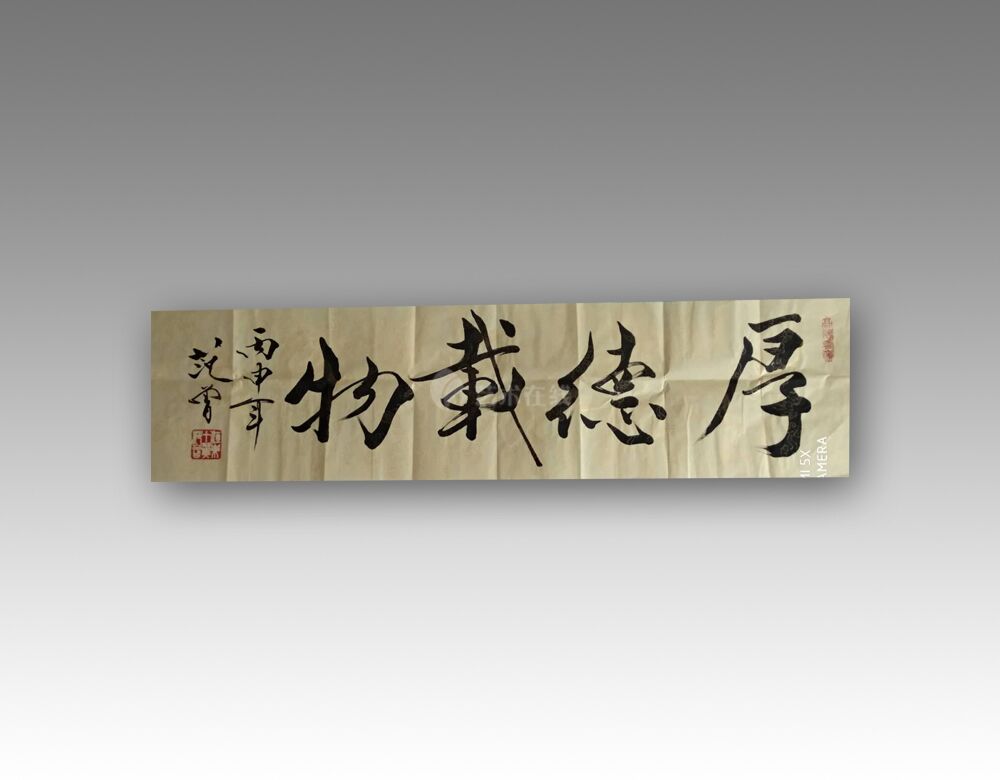 厚德载物
丙申年
范曾
MI 5X
AMERA